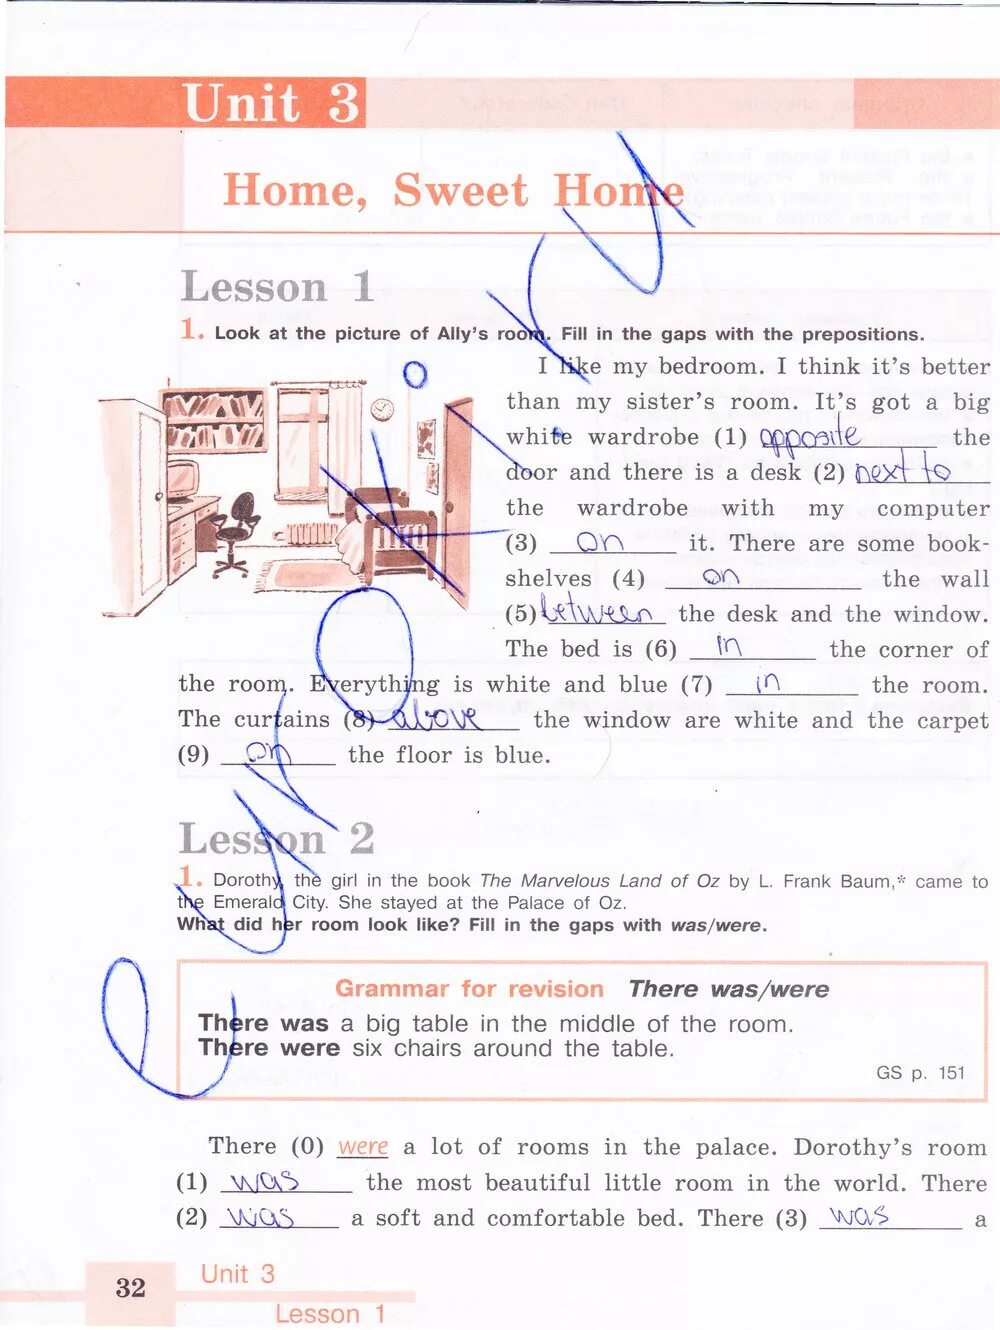 Unit 3
Home, Sweet Home
Lesson 1
1. Look at the picture of Ally's room. Fill in the gaps with the prepositions.
I like my bedroom. I think it's better
than my sister's room. It's got a big
white wardrobe (1) opposite the
door and there is a desk (2) next to
the wardrobe with my computer
(3) on it. There are some book-
shelves (4) on the wall
(5) between the desk and the window.
The bed is (6) in the corner of
the room. Everything is white and blue (7) in the room.
The curtains (8) above the window are white and the carpet
(9) on the floor is blue.
Lesson 2
1. Dorothy, the girl in the book The Marvelous Land of Oz by L. Frank Baum,* came to
the Emerald City. She stayed at the Palace of Oz.
What did her room look like? Fill in the gaps with was/were.
Grammar for revision There was/were
There was a big table in the middle of the room.
There were six chairs around the table.
GS p. 151
There (0) were a lot of rooms in the palace. Dorothy's room
(1) was the most beautiful little room in the world. There
(2) was a soft and comfortable bed. There (3) was a
32
Unit 3
Lesson 1
euroki.ru